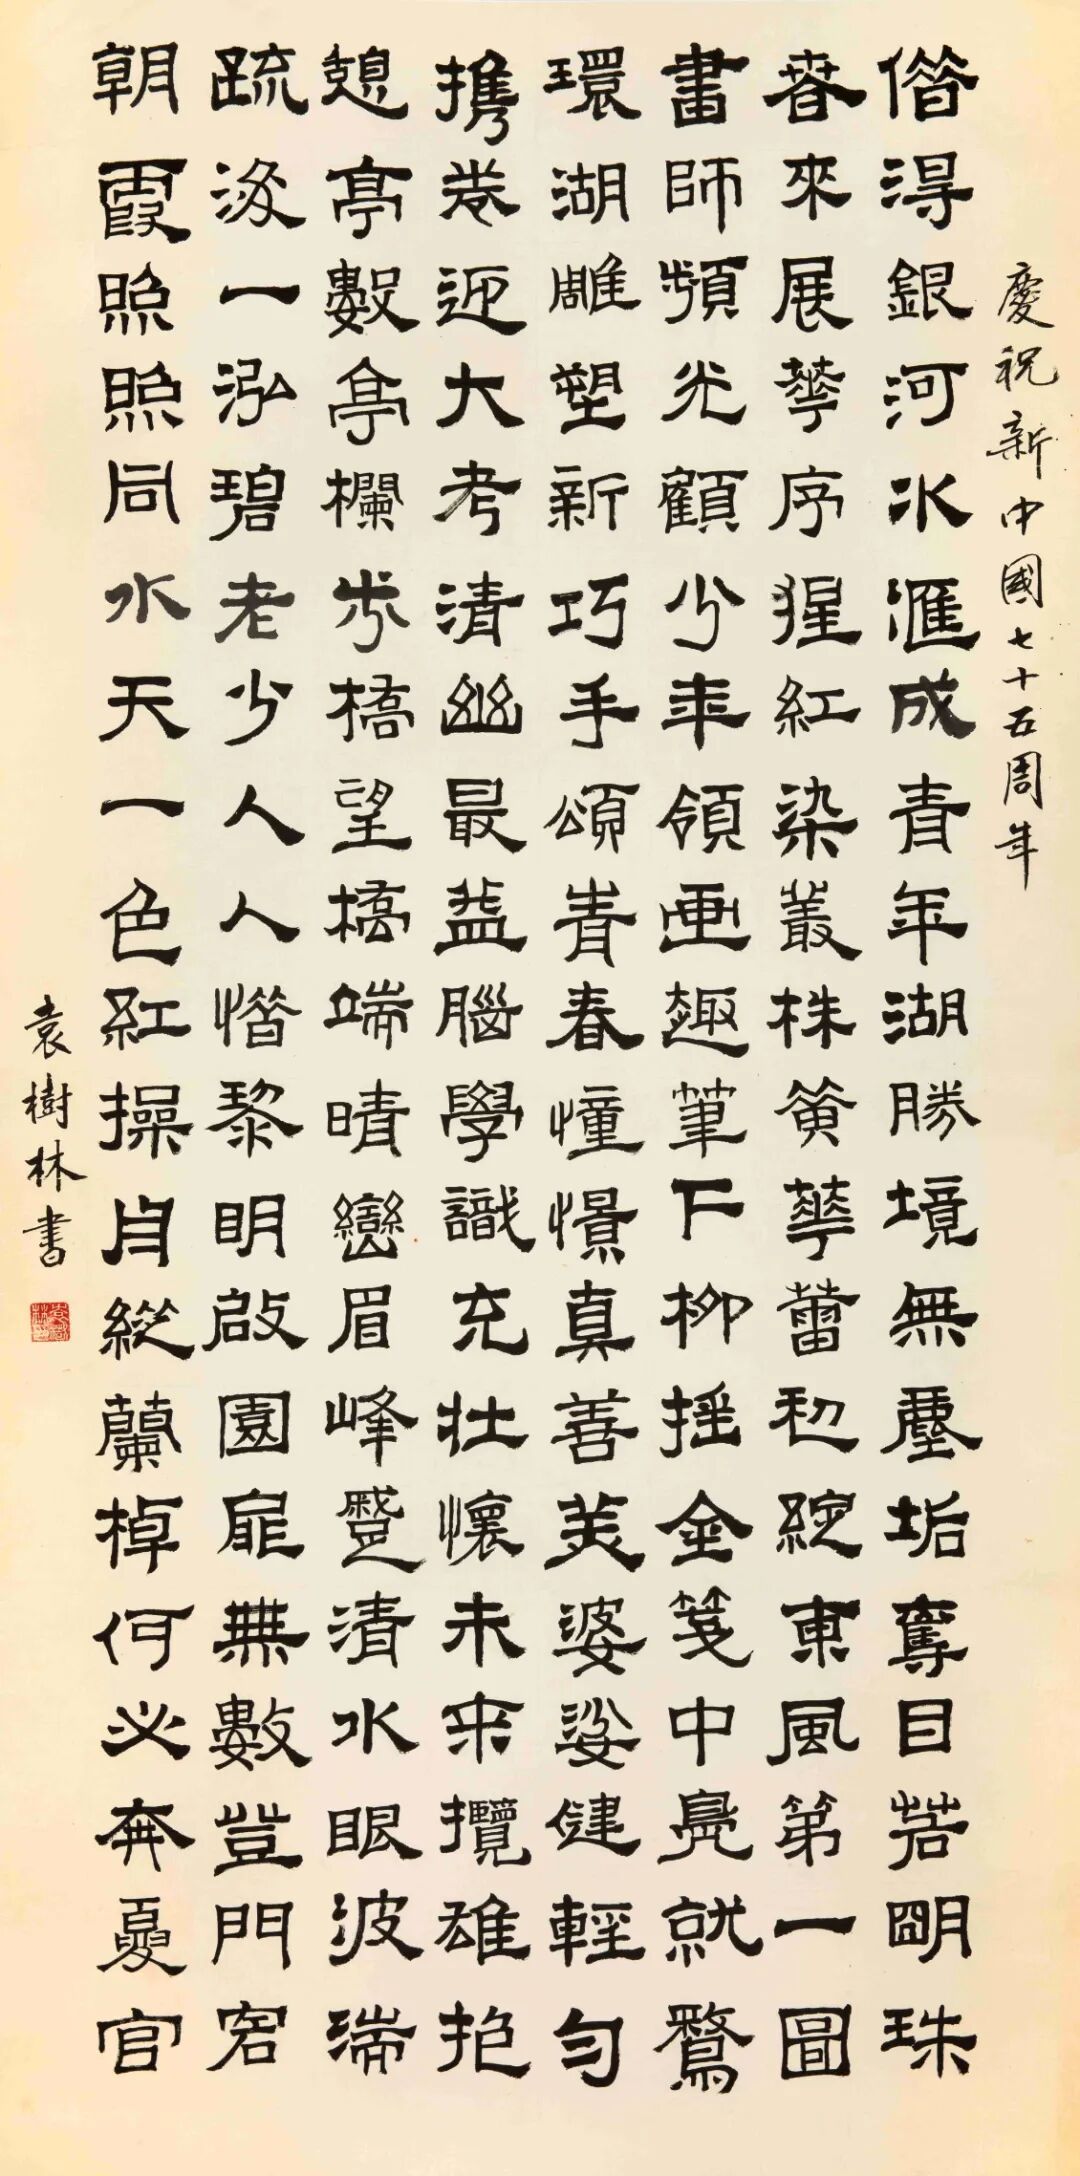 慶祝新中國七十五周年
借得銀河水滙成青年湖勝境無塵垢奪目若明珠
春來展華序猩紅染叢株黃華蕾初綻東風第一圖
畫師頻光顧少年領画趣筆下柳搖金箋中鳧就鶩
環湖雕塑新巧手頌青春憧憬真善美婆娑健輕勻
攜卷迎大考清幽最益腦學識充壯懷未來攬雄抱
憩亭數亭欄步橋望橋端晴巒眉峰蹙清水眼波湍
疏浚一泓碧老少人人惜黎明啟園扉無數登門客
朝霞照照同水天一色紅操舟縱蘭棹何必奔夏官
袁樹林書